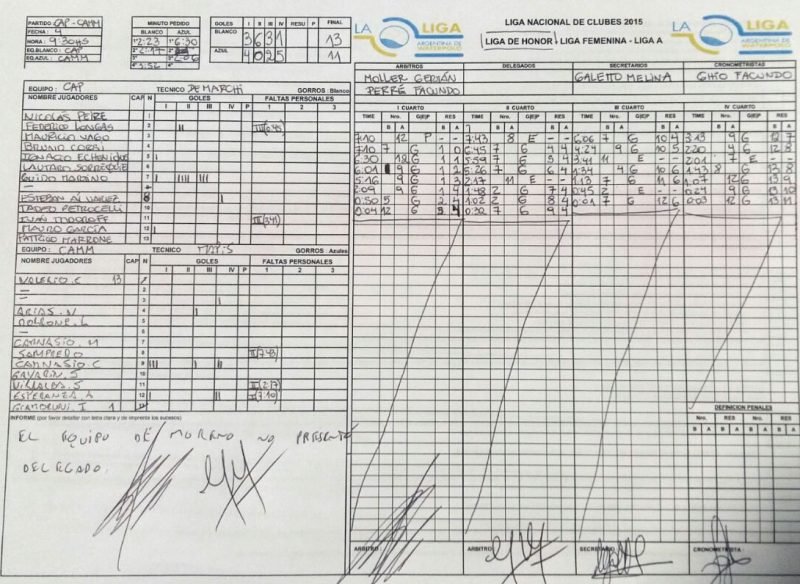 PARTIDO: CAP - CAMM
FECHA: 9
HORA: 9:30HS
EQ.BLANCO: CAP
EQ.AZUL: CAMM
MINUTO PEDIDO
BLANCO AZUL
1° 2:23 1° 6:30
GOLES I II III IV RESU P FINAL
BLANCO 3 6 3 1 13
AZUL 4 0 2 5 11
LA LIGA
ARGENTINA DE WATERPOLO
LIGA NACIONAL DE CLUBES 2015
LIGA DE HONOR - LIGA FEMENINA - LIGA A
LA LIGA
ARGENTINA DE WATERPOLO
ARBITROS DELEGADOS SECRETARIOS CRONOMETRISTAS
MOLLER GERMÁN GALETTO MELINA GHIO FACUNDO
PERRÉ FACUNDO
EQUIPO: CAP TECNICO DE MARCHI GORROS: Blanco
NOMBRE JUGADORES CAP N GOLES FALTAS PERSONALES
I II III IV P 1 2 3
NICOLAS PEIRE 1
FEDERICO LONGAS 2
MAURICIO VAGO 3
BRUNO CORSI 4
IGNACIO ECHENIQUE 5
LAUTARO 6
GUIDO MARTINO 7
ESTEBAN
TADEO PETROCELLI 10
IVAN TODOROFF 11
MAURO GARCÍA 12
PATRICIO MARRONE 13
EQUIPO: CAMM TECNICO GORROS: Azules
NOMBRE JUGADORES CAP N GOLES FALTAS PERSONALES
I II III IV P 1 2 3
VALERIO C 13
ARIAS. N 4
5
CAMNASIO. M 7
SAMPIERO 8
CAMNASIO C 9
GAVARINI. S 10
VILLALBA. S 11 II (2:17)
ESPERANZA A 12 I (7:10)
INFORME (por favor detallar con letra clara y de imprenta los sucesos)
EL EQUIPO DE MORENO NO PRESENTA
DELEGADO.
I CUARTO II CUARTO III CUARTO IV CUARTO
TIME Nro. G|E|P RES TIME Nro. G|E|P RES TIME Nro. G|E|P RES TIME Nro. G|E|P RES
B A B A B A B A B A B A B A B A
7:10 12 P - - 7:43 8 E - - 6:06 7 G 10 4 3:13 9 G 12 7
7:10 7 G 1 0 6:45 7 G 5 4 4:24 9 G 10 5 2:20 4 G 12 8
6:30 12 G 1 1 5:59 7 G 5 4 3:41 11 E - - 2:01 7 E - -
6:01 9 G 1 2 5:26 7 G 6 4 1:34 4 G 10 6 1:43 8 G 13 8
5:16 9 G 1 3 2:17 11 E - - 1:13 7 G 11 6 1:07 12 G 13 9
2:09 9 G 1 4 1:48 2 G 7 4 0:45 2 E - - 0:24 9 G 13 10
0:50 5 G 2 4 1:02 2 G 8 4 0:17 7 G 12 6 0:03 12 G 13 11
0:04 12 G 3 4 0:32 7 G 9 4
DEFINICION PENALES
Nro. RES Nro. RES
B A B A B A B A
ARBITRO ARBITRO SECRETARIO CRONOMETRISTA